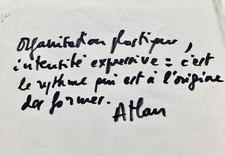 organisation plastique,
intensité expressive = c'est
le rythme qui est à l'origine
des formes.
Atlan